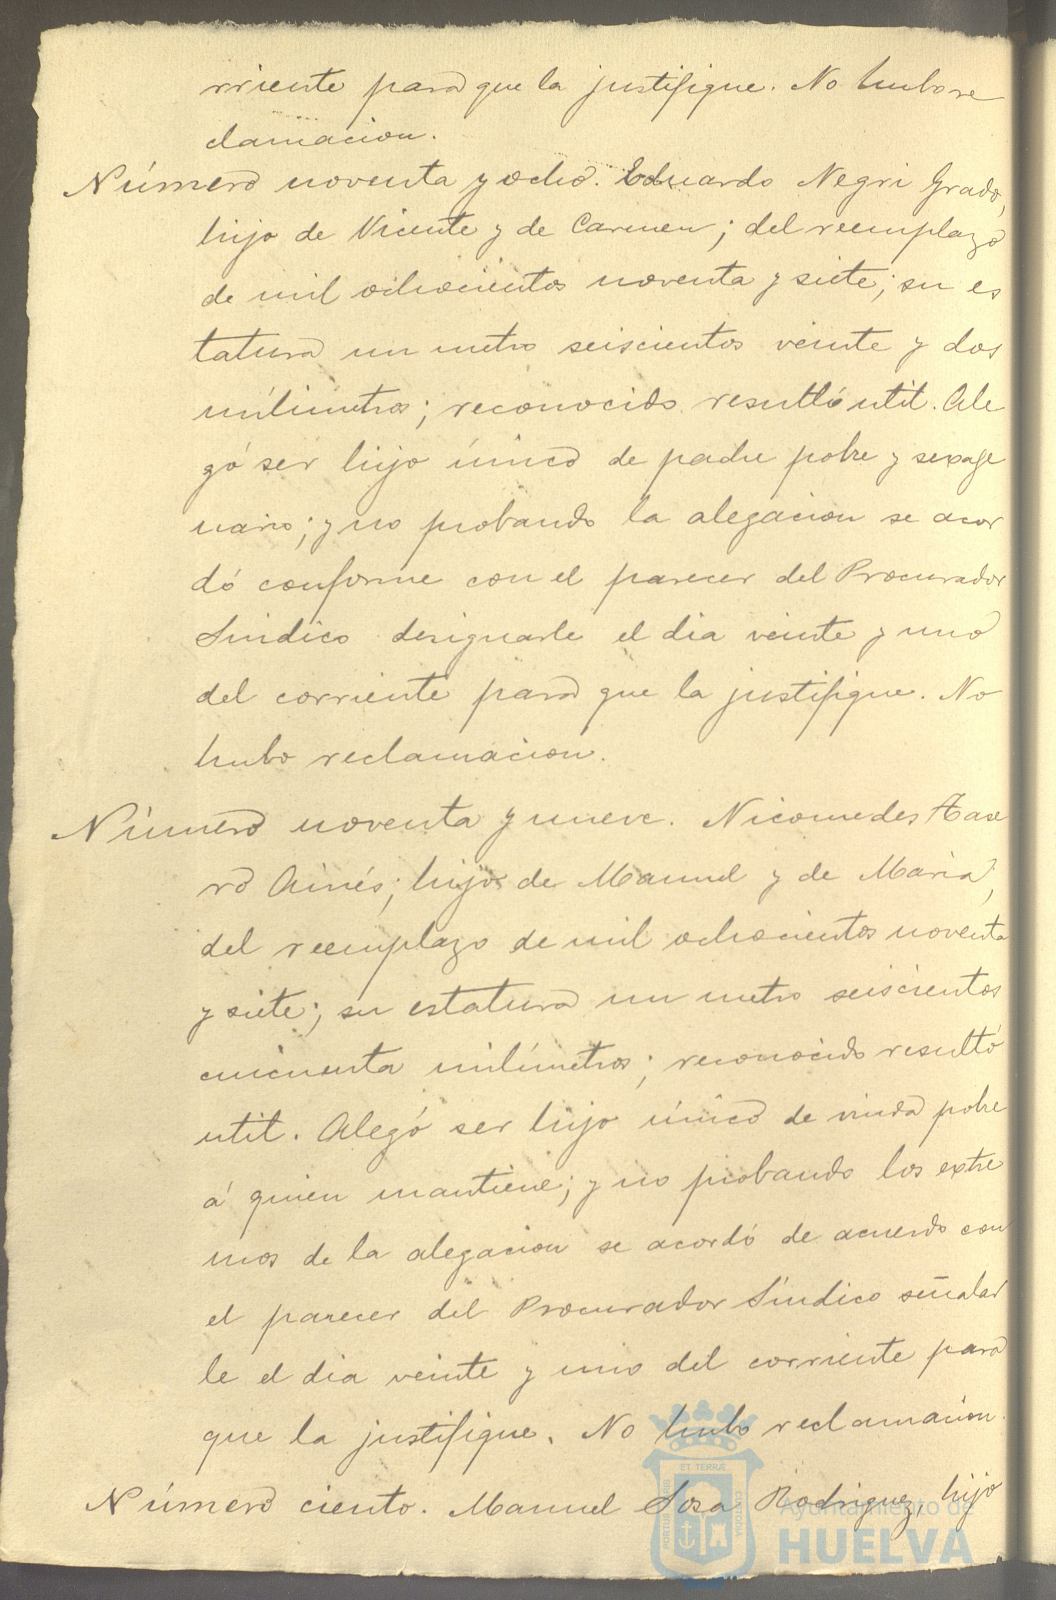 rriente para que la justifique. No hubo re
clamacion.
Número noventa y ocho. Eduardo Negri Grado,
hijo de Vicente y de Carmen; del reemplazo
de mil ochocientos noventa y siete; su es
tatura un metro seiscientos veinte y dos
milímetros; reconocido resultó util. Ale
gó ser hijo único de padre pobre y sexage
nario; y no probando la alegacion se acor
dó conforme con el parecer del Procurador
Síndico designarle el dia veinte y uno
del corriente para que la justifique. No
hubo reclamacion.
Número noventa y nueve. Nicomedes
ro; hijo de Manuel y de Maria,
del reemplazo de mil ochocientos noventa
y siete; su estatura un metro seiscientos
cincuenta milímetros; reconocido resultó
util. Alegó ser hijo único de viuda pobre
á quien mantiene; y no probando los extre
mos de la alegacion se acordó de acuerdo con
el parecer del Procurador Síndico señalar
le el dia veinte y uno del corriente para
que la justifique. No hubo reclamacion.
Número ciento. Manuel Sosa Rodriguez, hijo
ET TERRÆ
PORTUS MARIS
CUSTODIA
Ayuntamiento de
HUELVA